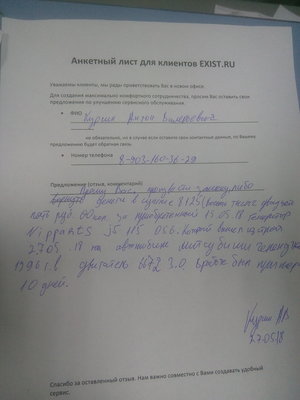 Анкетный лист для клиентов EXIST.RU
Уважаемы клиенты, мы рады приветствовать Вас в новом офисе.
Для создания максимально комфортного сотрудничества, просим Вас оставить свои
предложение по улучшению сервисного обслуживания.
• ФИО Антон
не обязательно, но в случае если оставить свои контактные данные, по Вашему
предложению будет обратная связь.
• Номер телефона 8-903-160-36-29
Предложение (отзыв, комментарий)
Прошу Вас, произвести замену, либо
деньги в сумме 8125 (восемь тысяч
руб. 00 коп. за приобретенный 15.05.18 генератор
Nipparts J5 115 056.
27.05.18 на автомобиле митсубиши
1996 г.в двигатель 6G72 3.0. был
10 дней.
27.05.18
Спасибо за оставленный отзыв. Нам важно совместно с Вами создавать удобный
сервис.